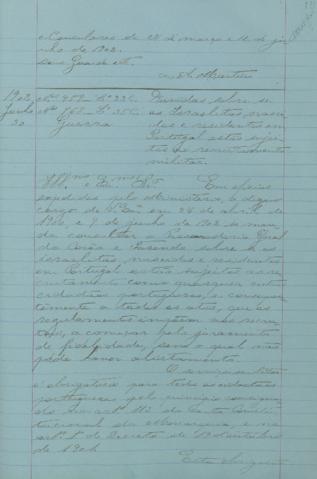 Consulares de 28 de março e 11 de ju-
nho de 1902.
Deus Guarde etc.
1902 Nº 459 Lº 33
junho Nº 663
20 Guerra
Duvidas sobre se
os Israelitas nasci-
dos e residentes em
Portugal estão sujei-
tos ao recrutamento
militar.
Exmo Sr. Em officios
expedidos pelo Ministerio, a digno
cargo de V. Exa em 24 de abril de
e 9 de junho de 1902 se man-
da consultar a Procuradoria Geral
da Corôa e Fazenda sobre se os
israelitas, nascidos e residentes
em Portugal estão sujeitos ao re-
crutamento como quaesquer outros
cidadãos portuguezes, e consequen-
temente a todos os actos, que os
regulamentos impõem aos recru-
tas, a começar pelo juramento
de fidelidade, sem o qual não
pode haver alistamento.
O serviço militar
é obrigatorio para todos os cidadãos
portuguezes pelo principio consigna-
do no artº 113 da Carta Consti-
tucional da Monarchia, e no
artº 1º do Decreto de
de 1901